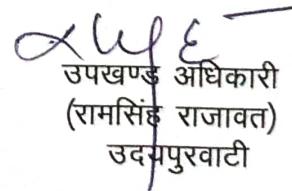 उपखण्ड अधिकारी
(रामसिंह राजावत)
उदयपुरवाटी